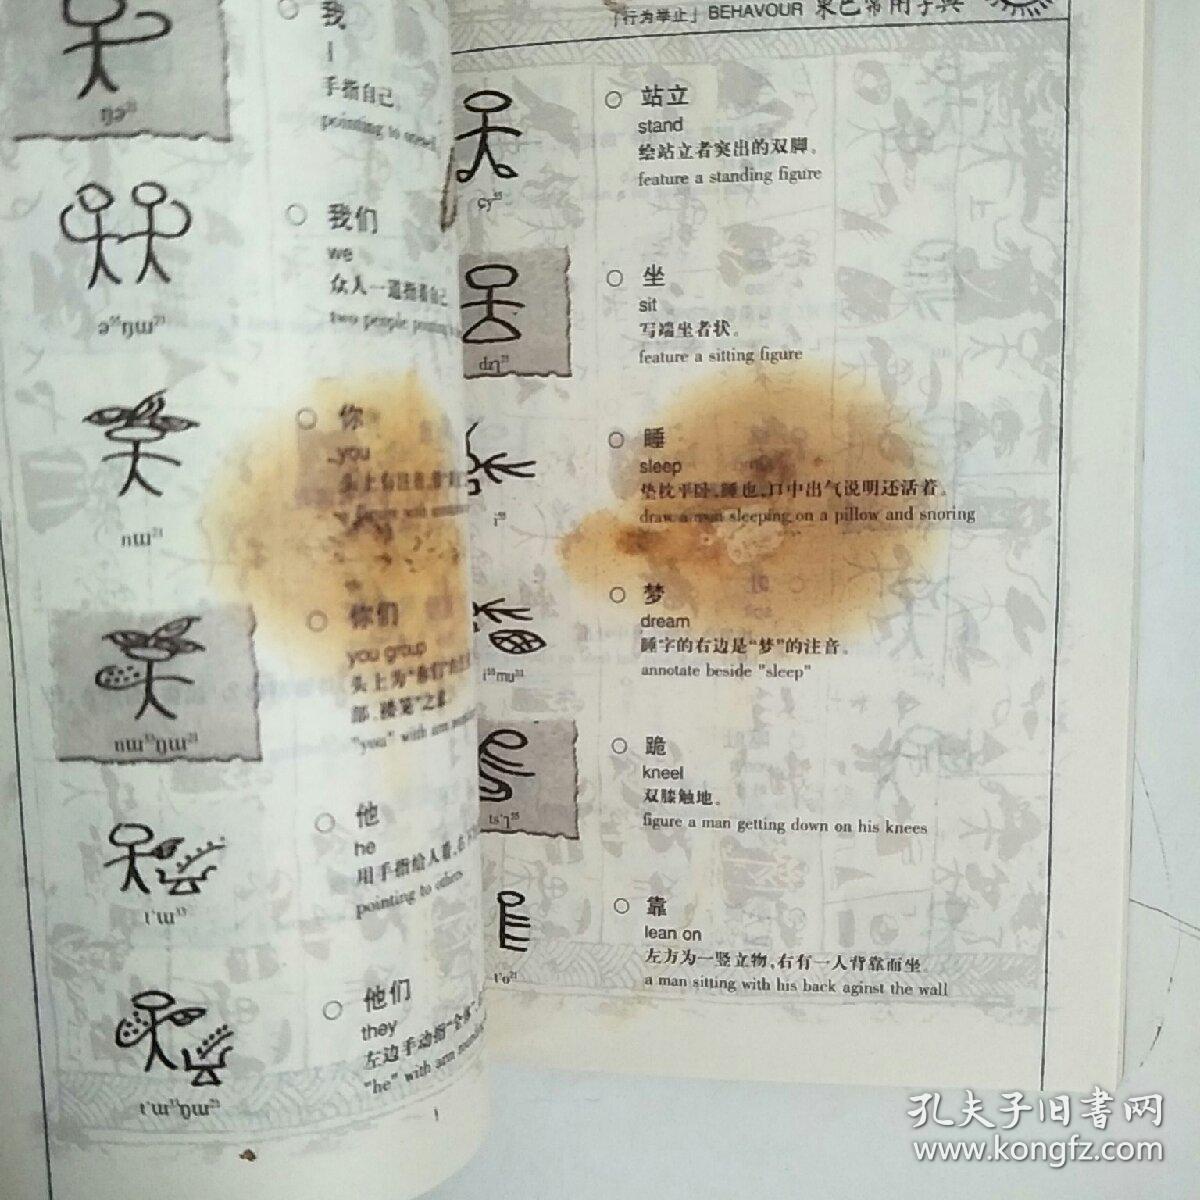 我
I
手指自己
pointing to
ŋə²¹
我们
we
众人一道指着自己
two people pointing
ə⁵⁵ŋɯ²¹
你
you
头上有注音
nɯ²¹
你们
you group
头上为"你们"
部、楼笼"之
"you" with arm
nɯ³³ŋɯ²¹
他
he
用手指给人看
pointing to others
t'ɯ³³
他们
they
左边手动指"全体"
"he" with arm
t'ɯ³³ŋɯ²¹
「行为举止」BEHAVOUR 东巴常用字典
站立
stand
绘站立者突出的双脚。
feature a standing figure
çy⁵⁵
坐
sit
写端坐者状。
feature a sitting figure
dzɿ²¹
睡
sleep
垫枕平卧,睡也,口中出气说明还活着。
draw a man sleeping on a pillow and snoring
i⁵⁵
梦
dream
睡字的右边是"梦"的注音。
annotate beside "sleep"
i⁵⁵mu³³
跪
kneel
双膝触地。
figure a man getting down on his knees
ts'ɿ⁵⁵
靠
lean on
左方为一竖立物,右有一人背靠而坐。
a man sitting with his back aginst the wall
t'o²¹
孔夫子旧书网
www.kongfz.com